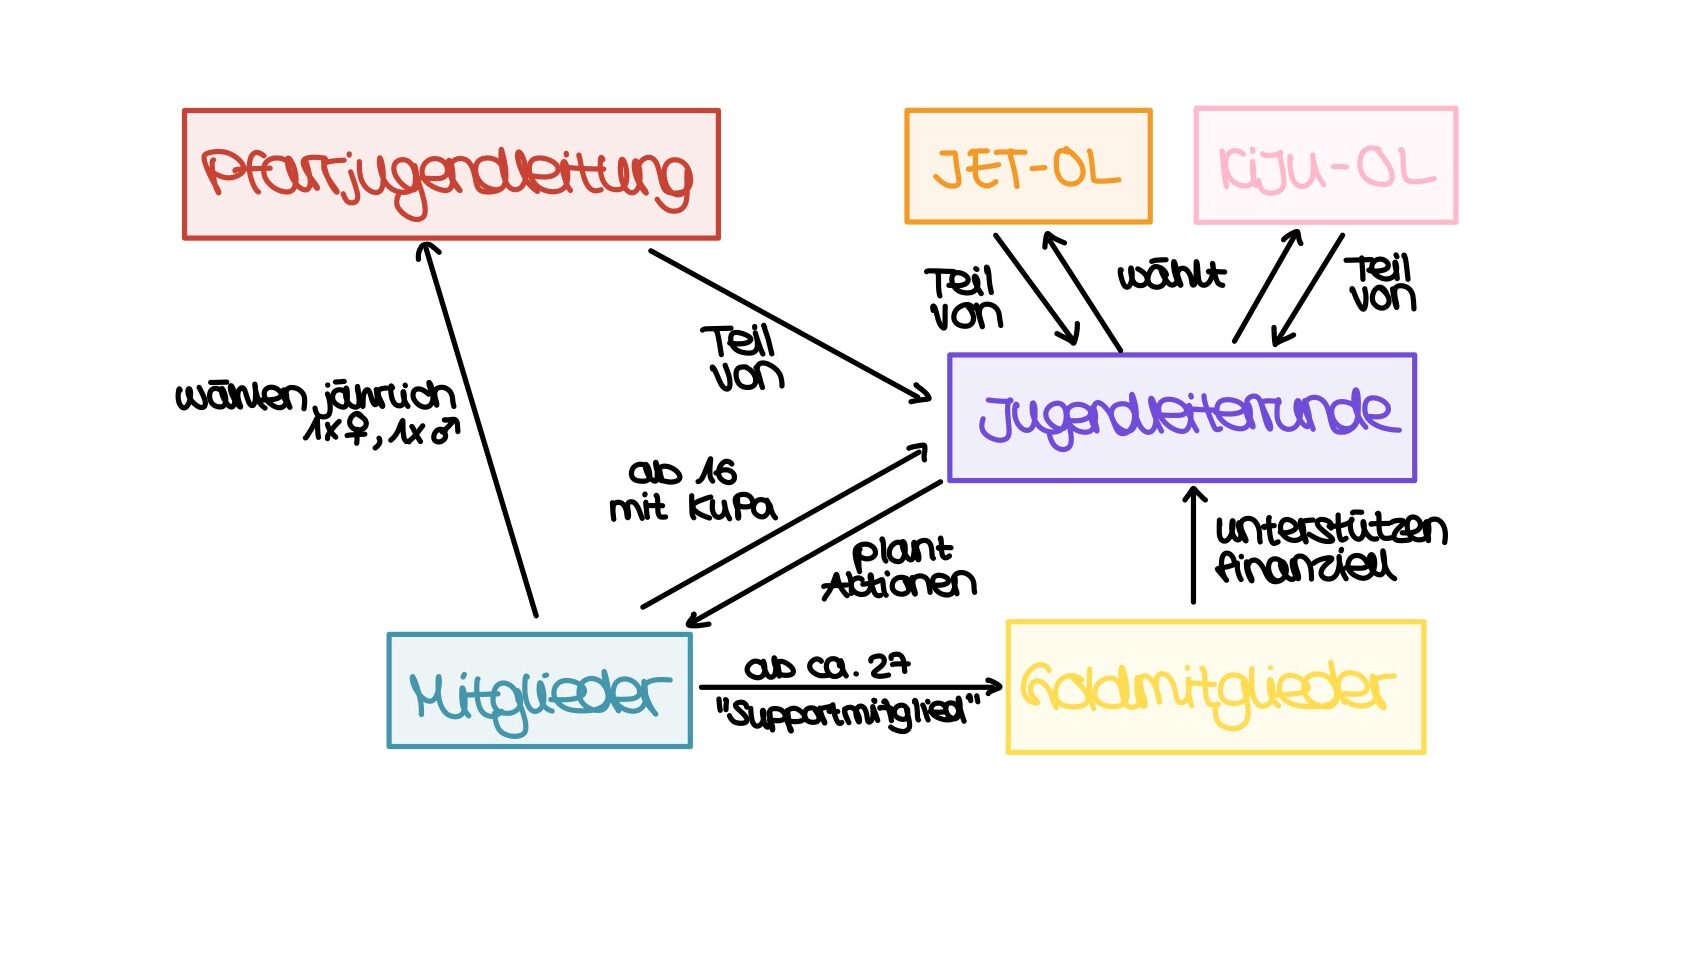 Pfarrjugendleitung
JET-OL
KiJu-OL
Teil
von
wählt
Teil
von
Teil
von
wählen jährlich
1x♀, 1x♂
Jugendleiterrunde
ab 16
mit KuPa
plant
Aktionen
unterstützen
finanziell
Mitglieder
ab ca. 27
"Supportmitglied"
Goldmitglieder